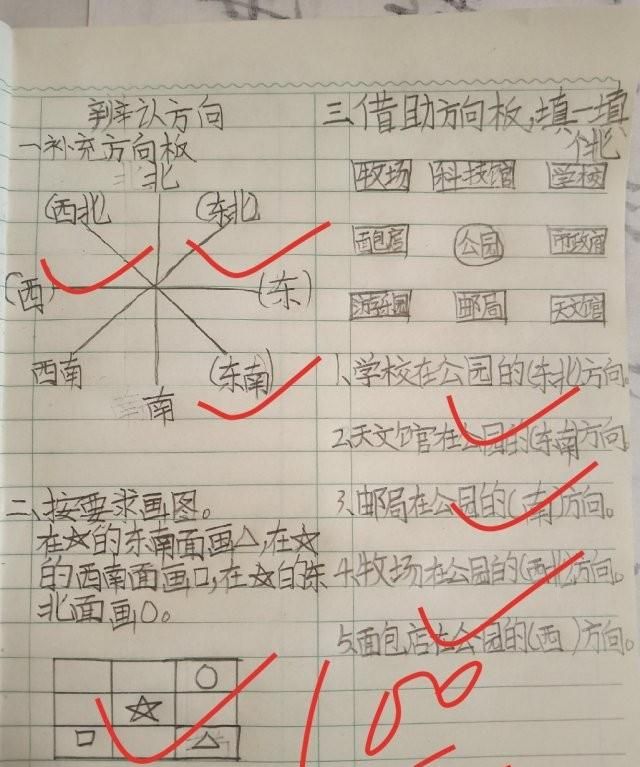 辨认方向
一补充方向板
北
(西北)
(东北)
(西)
(东)
西南
(东南)
南
二、按要求画图。
在☆的东南面画△,在☆
的西南面画口,在☆的东
北面画O。
三借助方向板,填一填
个北
牧场 科技馆 学校
面包店 公园 市政府
游乐园 邮局 天文馆
1、学校在公园的(东北)方向。
2天文馆在公园的(东南)方向
3、邮局在公园的(南)方向。
4、牧场在公园的(西北)方向。
5、面包店在公园的(西)方向。
100